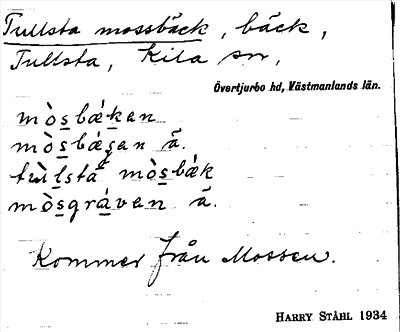 Tullsta mossbäck, bäck,
Tullsta, Kila sn,
Övertjurbo hd, Västmanlands län.
mòsbǽken
mòsbǽgan ä.
tùlstä mòsbǽk
mòsgráven ä.
Kommer från Mossen.
HARRY STÅHL 1934